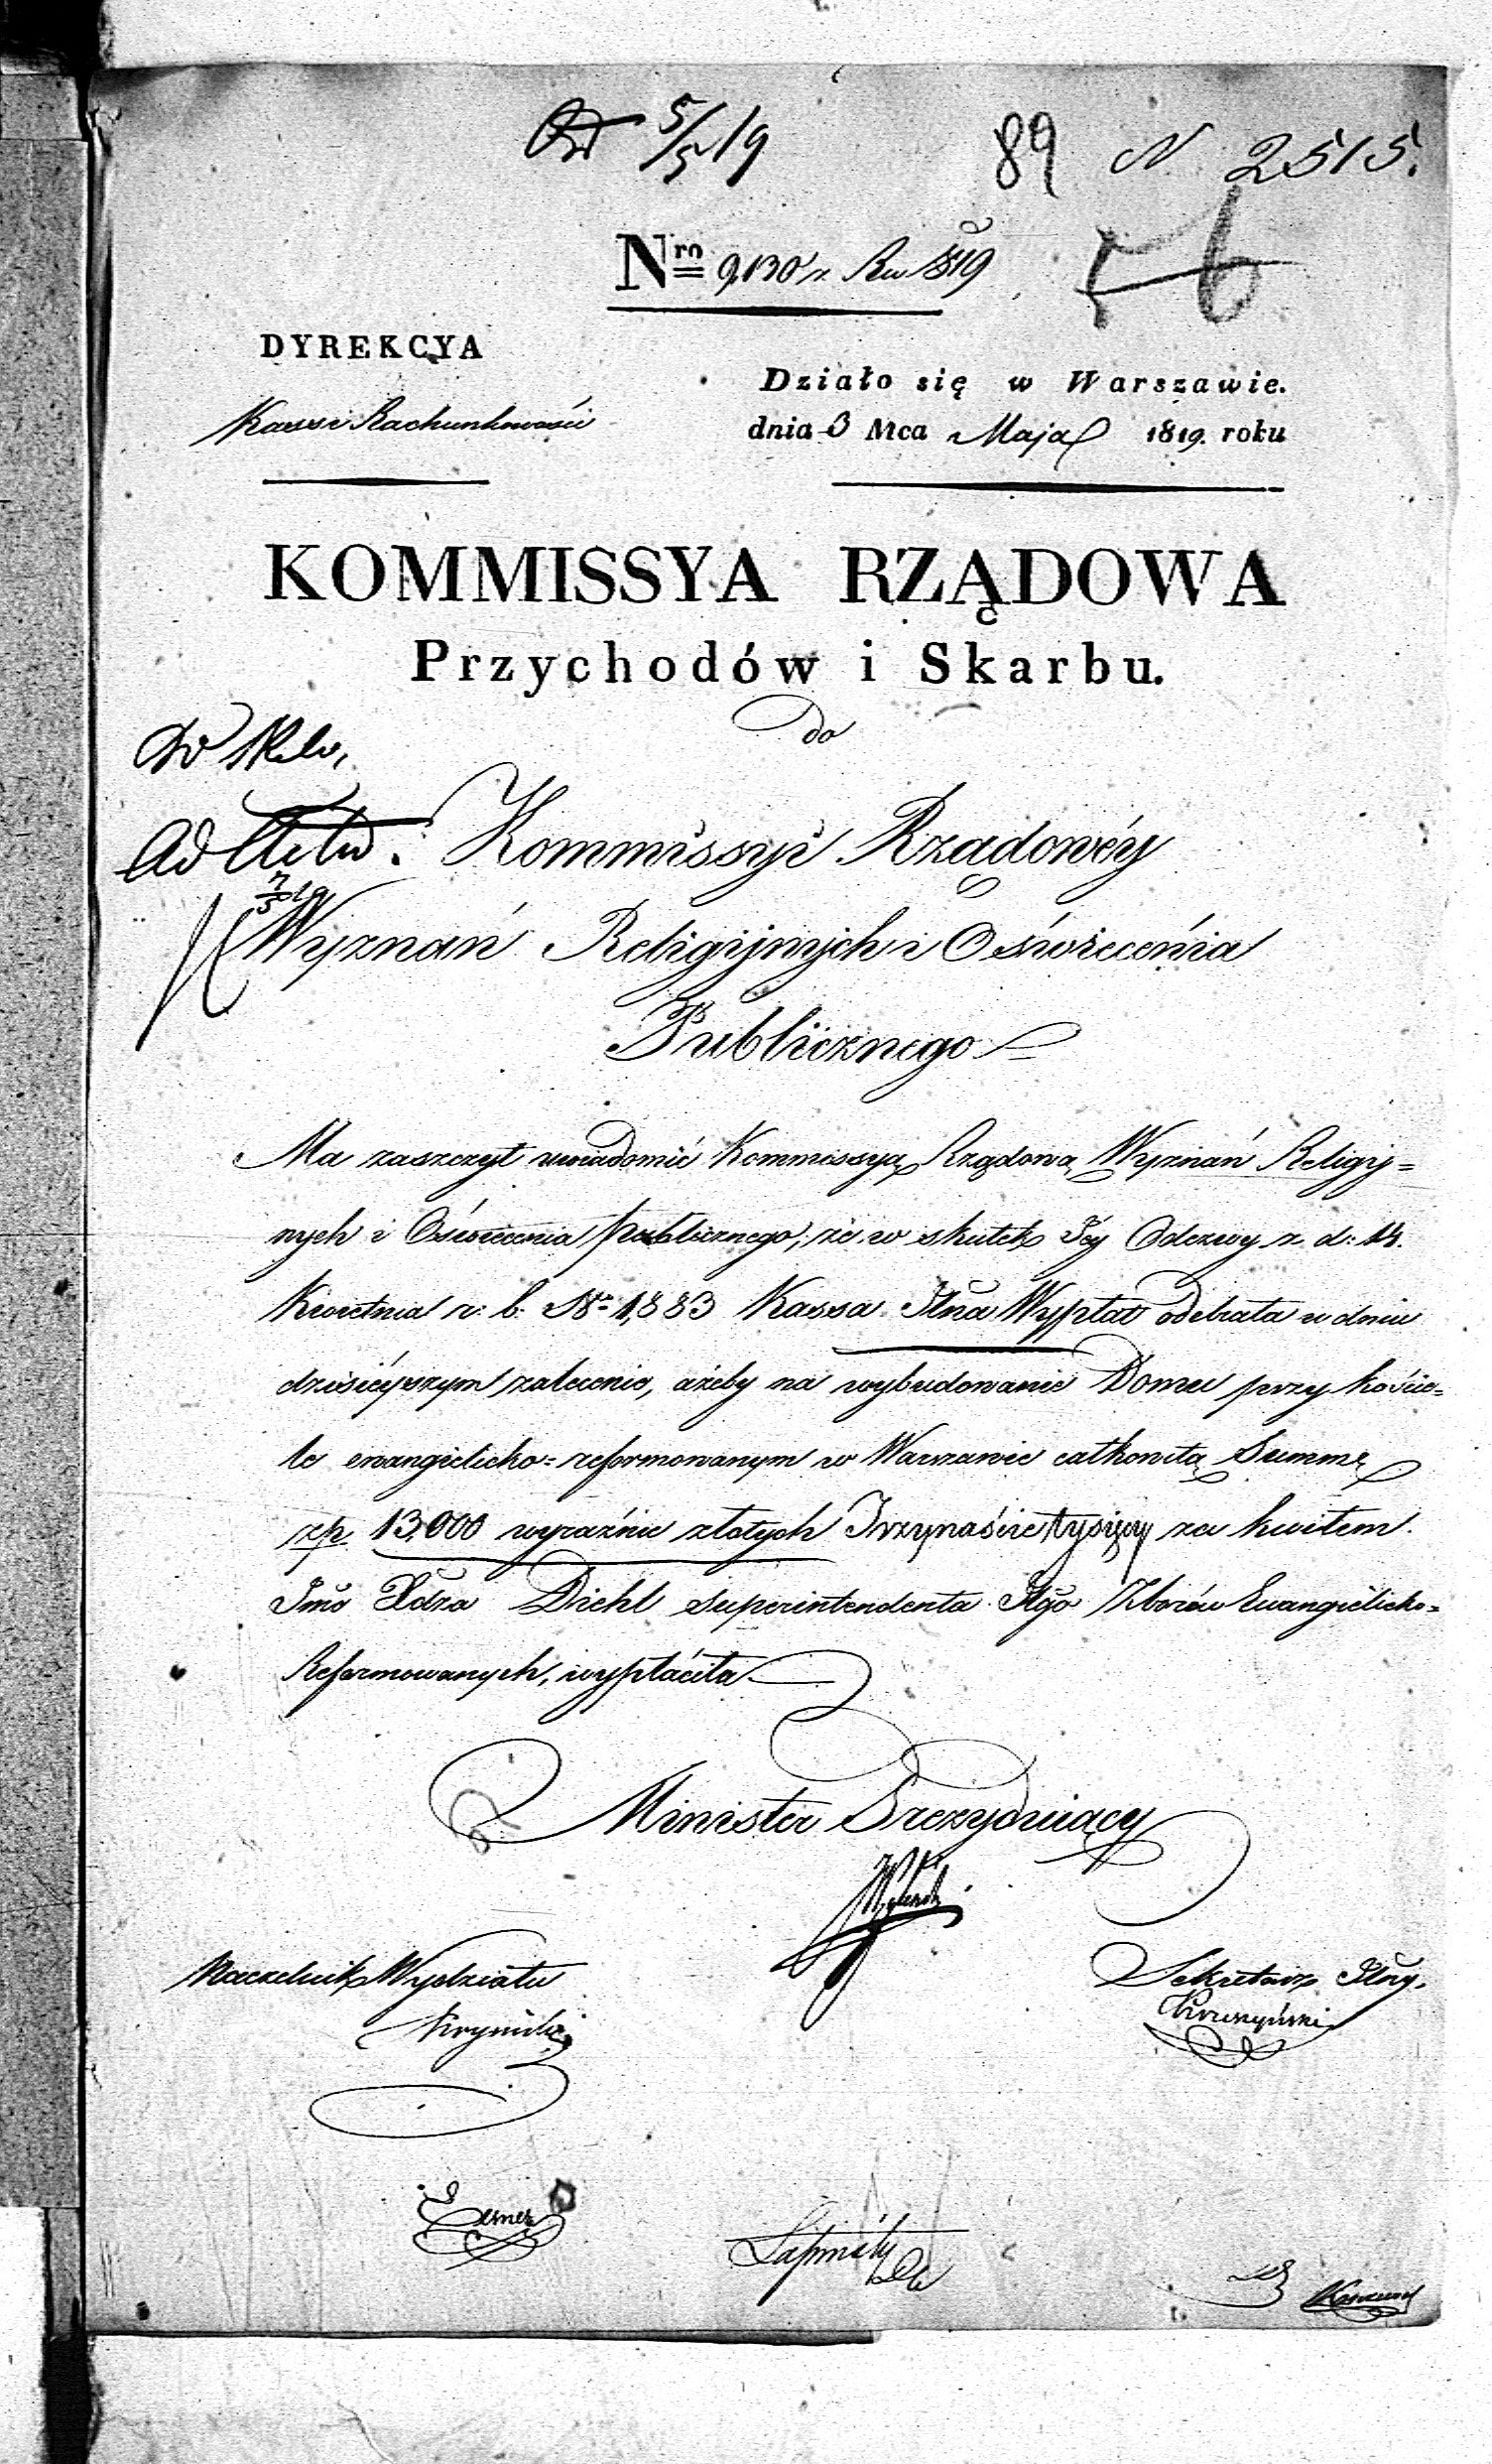 5/5 19
89 N 2515.
Nro 9,130 z Ru 1819
DYREKCYA
Kassi Rachunkowości
Działo się w Warszawie.
dnia 3 Mca Maja 1819. roku
KOMMISSYA RZĄDOWA
Przychodów i Skarbu.
do
Kommissyi Rządowéy
7/5 19
Wyznań Religijnych i Oświecenia
Publicznego
Ma zaszczyt uwiadomić Kommissyą Rządową Wyznań Religij=
nych i Oświecenia publicznego, że w skutek Jéy Odezwy z d: 14.
Kwietnia r: b. No 1,883 Kassa Głna Wypłat odebrała w dniu
dzisiéyszym zalecenie, ażeby na wybudowanie Domu przy kościo=
le ewangielicko=reformowanym w Warszawie całkowitą Summę
zp. 13,000 wyraźnie złotych Trzynaście tysięcy za kwitem
Jmo Xdza Diehl Superintendenta Głgo Zborów Ewangielicko=
Reformowanych, wypłaciła
Minister Prezyduiący
Naczelnik Wydziału
Sekretarz Głny.
Kruszyński